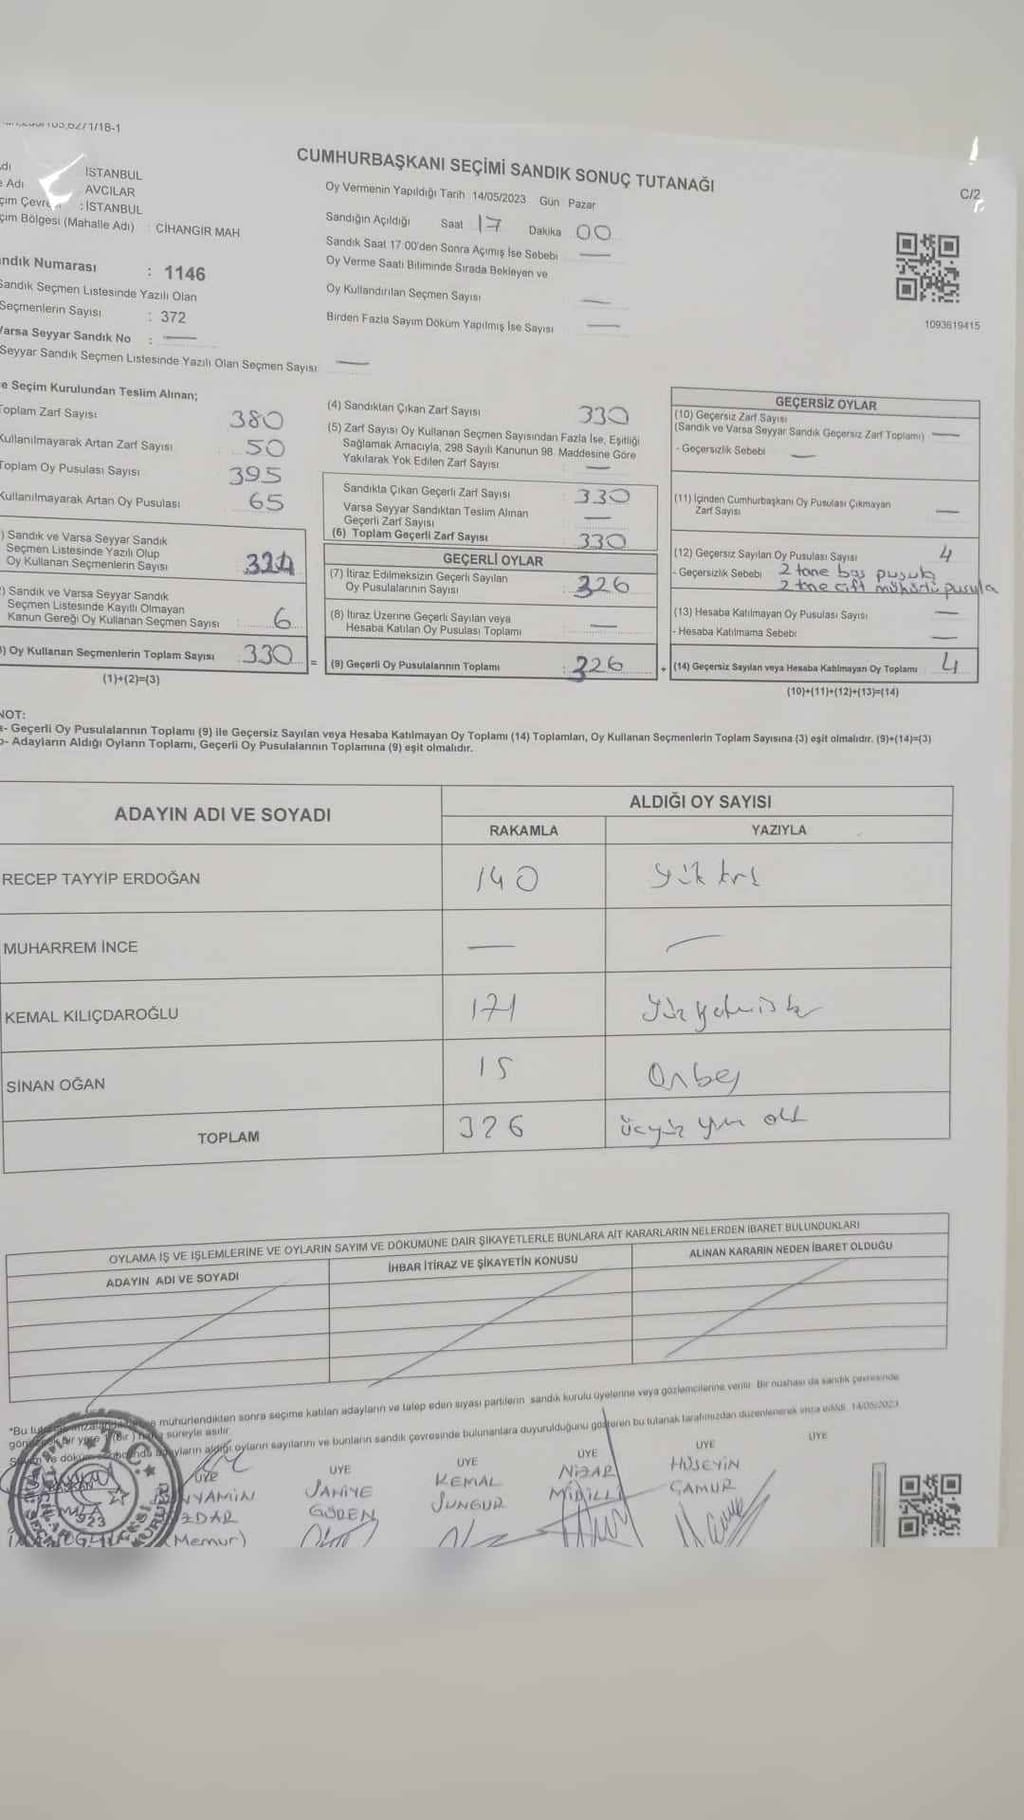 CUMHURBAŞKANI SEÇİMİ SANDIK SONUÇ TUTANAĞI
C/2
İSTANBUL
AVCILAR
: İSTANBUL
çim Bölgesi (Mahalle Adı) CİHANGİR MAH
ndık Numarası : 1146
Sandık Seçmen Listesinde Yazılı Olan
Seçmenlerin Sayısı : 372
Varsa Seyyar Sandık No : —
Seyyar Sandık Seçmen Listesinde Yazılı Olan Seçmen Sayısı —
Oy Vermenin Yapıldığı Tarih 14/05/2023 Gün Pazar
Sandığın Açıldığı Saat 17 Dakika 00
Sandık Saat 17:00'den Sonra Açımış İse Sebebi —
Oy Verme Saati Bitiminde Sırada Bekleyen ve
Oy Kullandırılan Seçmen Sayısı —
Birden Fazla Sayım Döküm Yapılmış İse Sayısı —
1093619415
e Seçim Kurulundan Teslim Alınan;
Toplam Zarf Sayısı 380
Kullanılmayarak Artan Zarf Sayısı 50
Toplam Oy Pusulası Sayısı 395
Kullanılmayarak Artan Oy Pusulası 65
) Sandık ve Varsa Seyyar Sandık
Seçmen Listesinde Yazılı Olup
Oy Kullanan Seçmenlerin Sayısı 324
) Sandık ve Varsa Seyyar Sandık
Seçmen Listesinde Kayıtlı Olmayan
Kanun Gereği Oy Kullanan Seçmen Sayısı 6
) Oy Kullanan Seçmenlerin Toplam Sayısı 330
(1)+(2)=(3)
(4) Sandıktan Çıkan Zarf Sayısı 330
(5) Zarf Sayısı Oy Kullanan Seçmen Sayısından Fazla İse, Eşitliği
Sağlamak Amacıyla, 298 Sayılı Kanunun 98. Maddesine Göre
Yakılarak Yok Edilen Zarf Sayısı —
Sandıkta Çıkan Geçerli Zarf Sayısı 330
Varsa Seyyar Sandıktan Teslim Alınan
Geçerli Zarf Sayısı —
(6) Toplam Geçerli Zarf Sayısı 330
GEÇERLİ OYLAR
(7) İtiraz Edilmeksizin Geçerli Sayılan
Oy Pusulalarının Sayısı : 326
(8) İtiraz Üzerine Geçerli Sayılan veya
Hesaba Katılan Oy Pusulası Toplamı —
= (9) Geçerli Oy Pusulalarının Toplamı : 326
GEÇERSİZ OYLAR
(10) Geçersiz Zarf Sayısı
(Sandık ve Varsa Seyyar Sandık Geçersiz Zarf Toplamı) —
- Geçersizlik Sebebi —
(11) İçinden Cumhurbaşkanı Oy Pusulası Çıkmayan
Zarf Sayısı —
(12) Geçersiz Sayılan Oy Pusulası Sayısı 4
- Geçersizlik Sebebi 2 tane boş pusula
2 tane çift mühürlü pusula
(13) Hesaba Katılmayan Oy Pusulası Sayısı —
- Hesaba Katılmama Sebebi —
+ (14) Geçersiz Sayılan veya Hesaba Katılmayan Oy Toplamı 4
(10)+(11)+(12)+(13)=(14)
NOT:
a- Geçerli Oy Pusulalarının Toplamı (9) ile Geçersiz Sayılan veya Hesaba Katılmayan Oy Toplamı (14) Toplamları, Oy Kullanan Seçmenlerin Toplam Sayısına (3) eşit olmalıdır. (9)+(14)=(3)
b- Adayların Aldığı Oyların Toplamı, Geçerli Oy Pusulalarının Toplamına (9) eşit olmalıdır.
ADAYIN ADI VE SOYADI ALDIĞI OY SAYISI
RAKAMLA YAZIYLA
RECEP TAYYİP ERDOĞAN 140 yüz kırk
MUHARREM İNCE — —
KEMAL KILIÇDAROĞLU 171 Yüz yetmiş bir
SİNAN OĞAN 15 Onbeş
TOPLAM 326 üçyüz yirmi altı
OYLAMA İŞ VE İŞLEMLERİNE VE OYLARIN SAYIM VE DÖKÜMÜNE DAİR ŞİKAYETLERLE BUNLARA AİT KARARLARIN NELERDEN İBARET BULUNDUKLARI
ADAYIN ADI VE SOYADI İHBAR İTİRAZ VE ŞİKAYETİN KONUSU ALINAN KARARIN NEDEN İBARET OLDUĞU
mühürlendikten sonra seçime katılan adayların ve talep eden siyasi partilerin sandık kurulu üyelerine veya gözlemcilerine verilir. Bir nüshası da sandık çevresinde
süreyle asılır.
adayların aldığı oyların sayılarını ve bunların sandık çevresinde bulunanlara duyurulduğunu gösteren bu tutanak tarafımızdan düzenlenerek imza edildi. 14/05/2023
ÜYE ÜYE ÜYE ÜYE ÜYE ÜYE
KEMAL NİZAR HÜSEYİN
GÜDEN SUNGUR ÇAMUR
(Memur)
T.C.